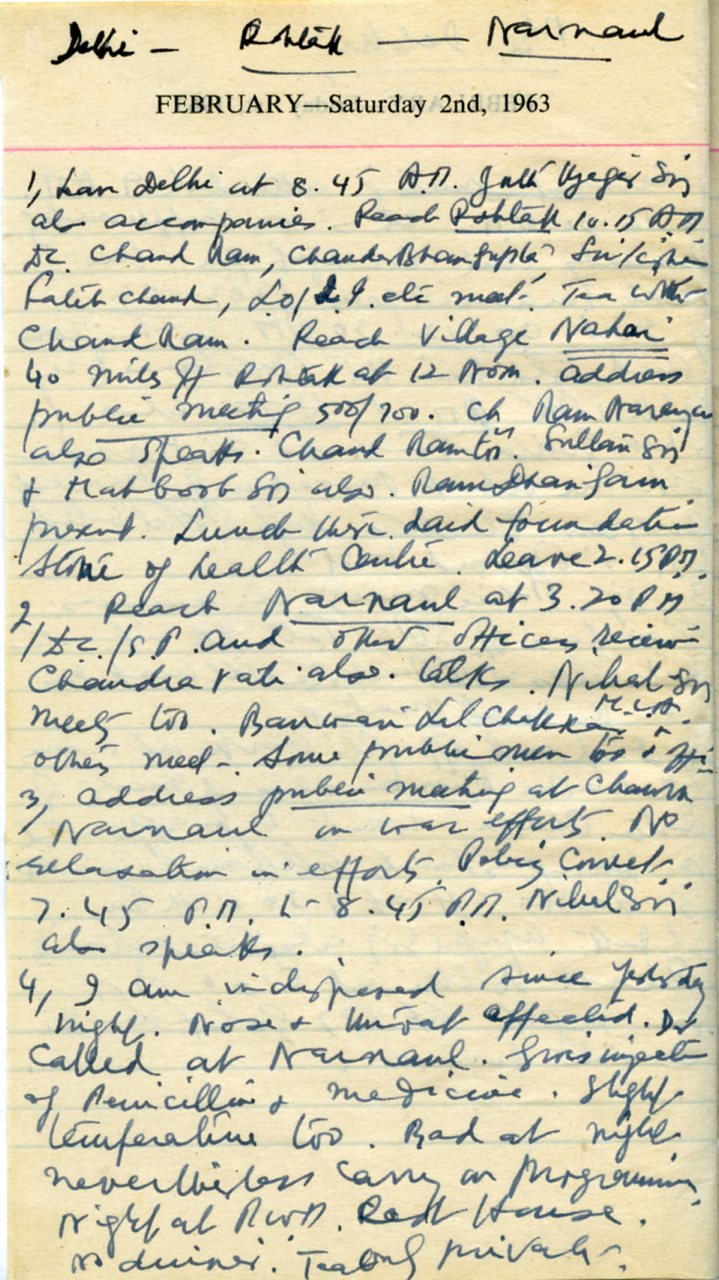 Delhi — Rohtak — Narnaul
FEBRUARY—Saturday 2nd, 1963
1, Leave Delhi at 8.45 A.M.
also accompanies. Reach Rohtak 10.15 A.M
Dc. Chand Ram, Chander Bhan Gupta,
Fateh Chand, etc meet. Tea with
Chand Ram. Reach Village Nahar
40 miles off Rohtak at 12 Noon. address
public meeting 500/700. Ch Ram Narayan
also speaks. Chand Ram too. Sultan Sinj
& Mahboob Sinj also.
present. Lunch there. Laid foundation
Stone of health Centre. Leave 2.15 PM.
2 Reach Narnaul at 3.20 PM
/Dc./S.P. and other officers receive
Chandravati also. talks. Nihal Sinj
meets too. Banwari Lal M.L.A.
others meet. Some public men too &
3, address public meeting at Chowk
Narnaul on war efforts. No
relaxation in efforts. Policy Correct.
7.45 P.M. to 8.45 P.M. Nihal Sinj
also speaks.
4, I am indisposed since yesterday
night. Nose & throat affected. Dr
Called at Narnaul. Gives injection
of Penicillin & medicine. Slight
temperature too. Bad at night
nevertheless Carry on Programme
Night at P.W.D. Rest House.
No dinner.